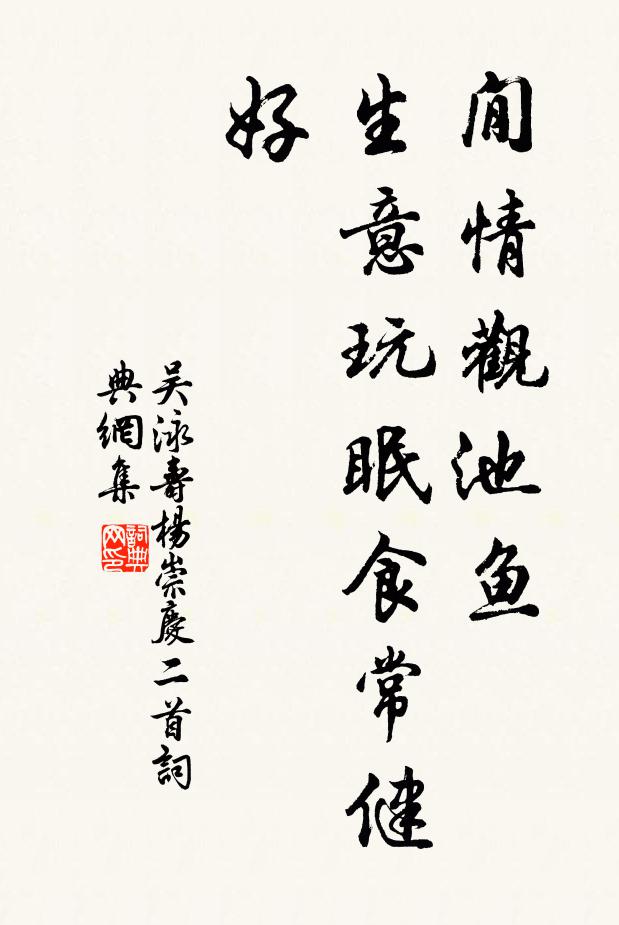 閒情觀池魚
生意玩眠食常健
好
吴泳壽楊崇慶二首詞
典網集
詞典
网印